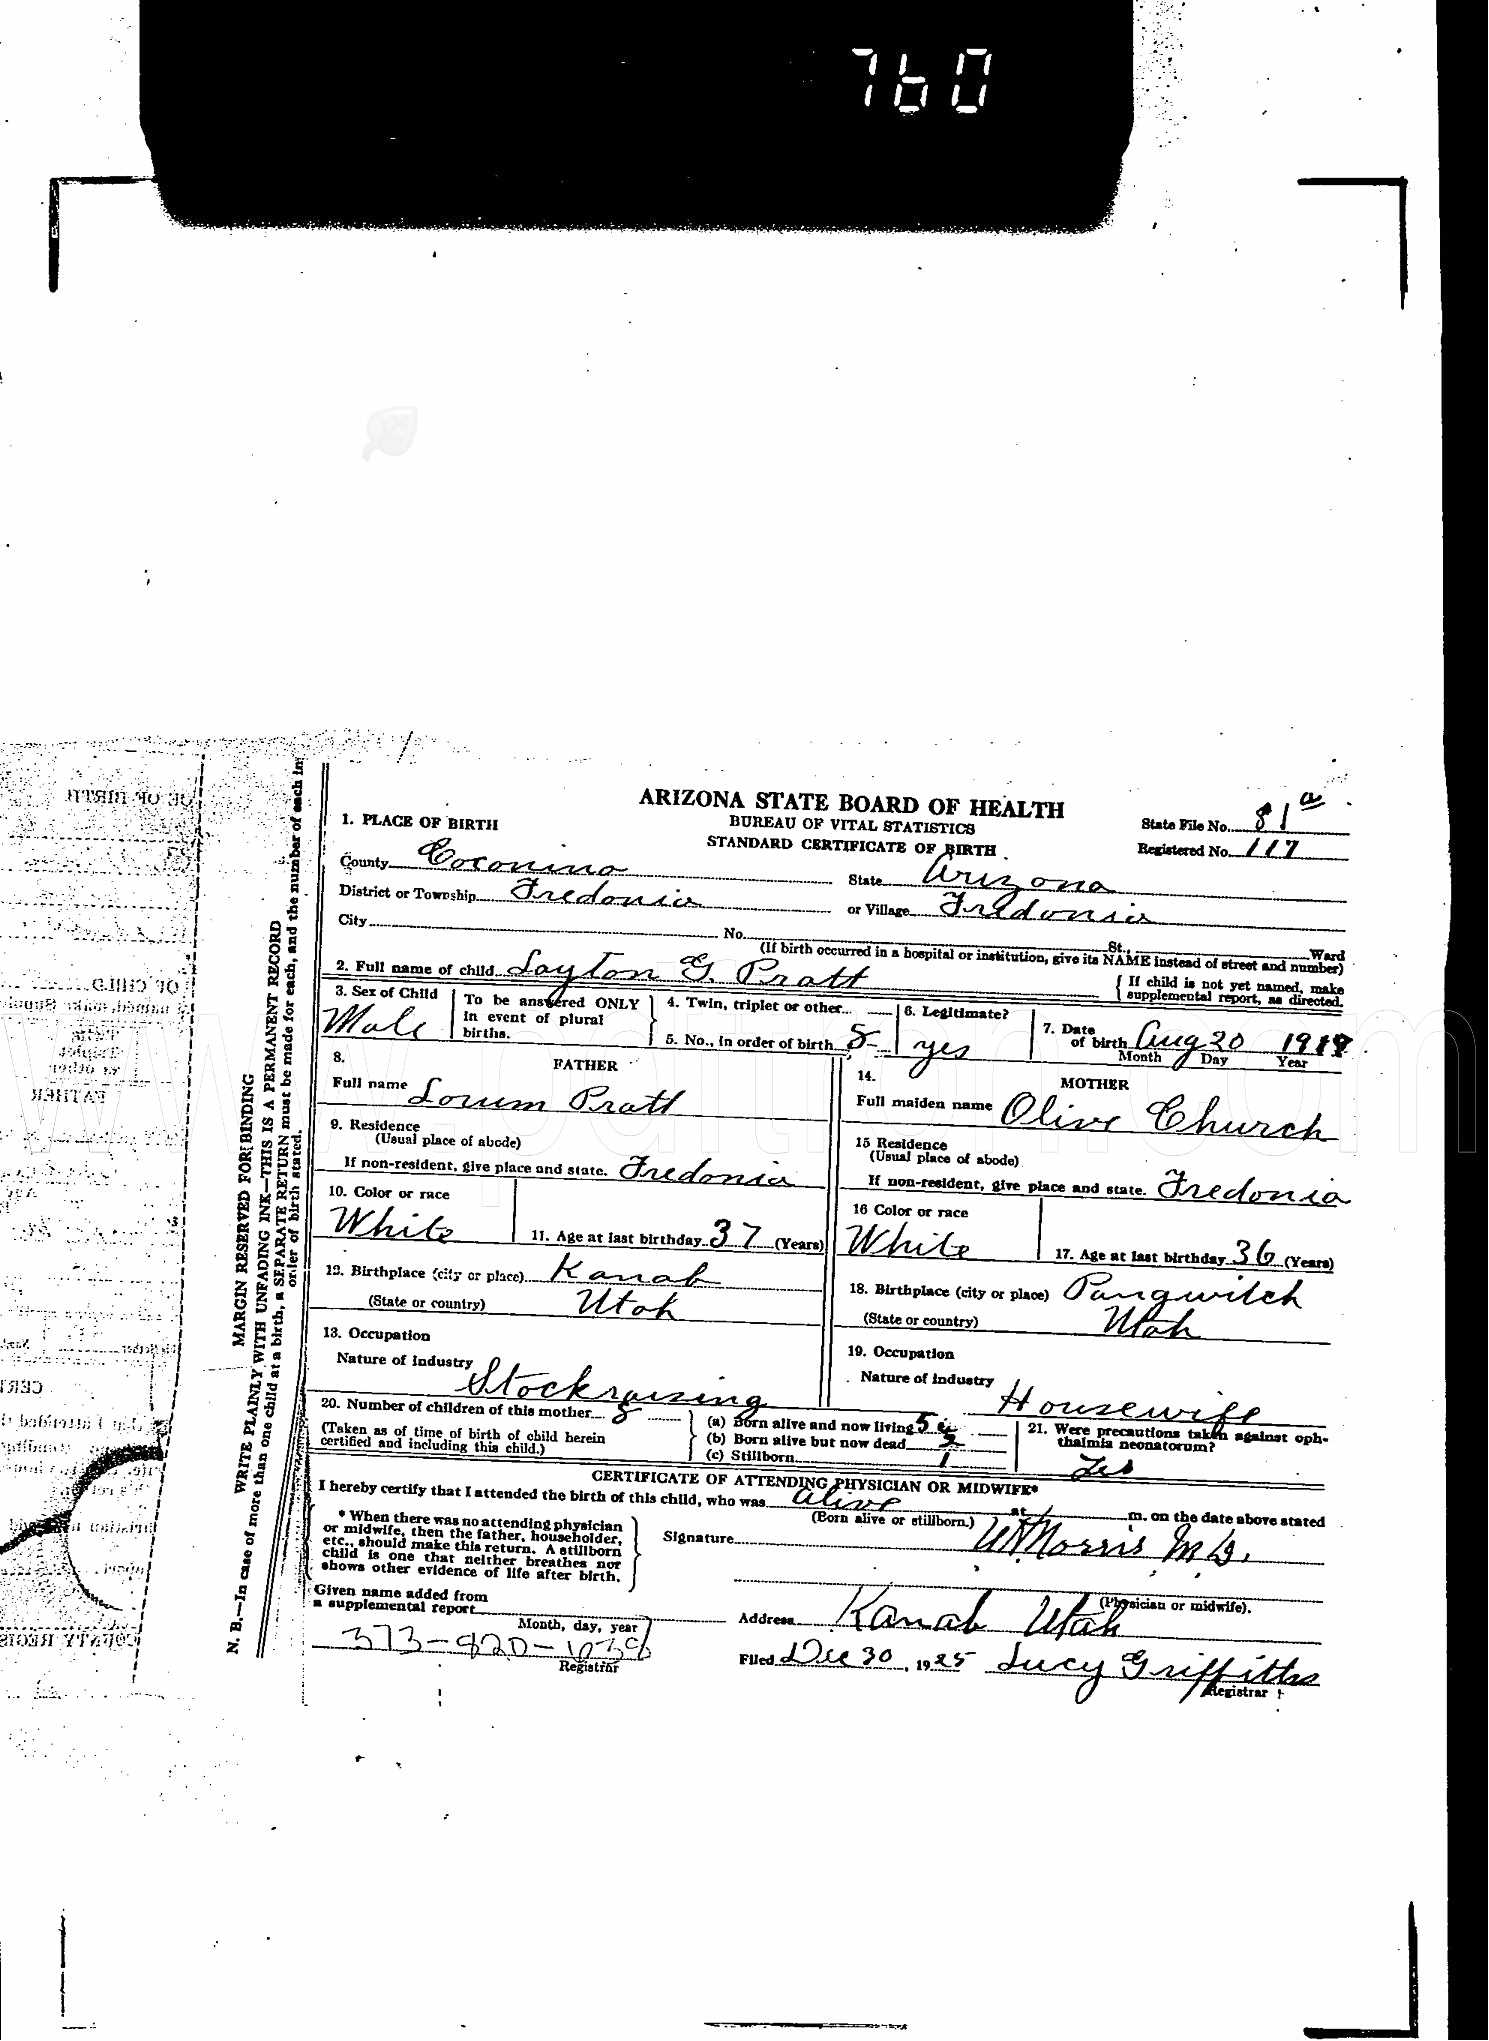 760
ARIZONA STATE BOARD OF HEALTH
BUREAU OF VITAL STATISTICS
STANDARD CERTIFICATE OF BIRTH
State File No. 81 a
Registered No. 117
1. PLACE OF BIRTH
County Coconino State Arizona
District or Township Fredonia or Village Fredonia
City No. St., Ward
(If birth occurred in a hospital or institution, give its NAME instead of street and number)
2. Full name of child Layton G. Pratt { If child is not yet named, make supplemental report, as directed.
3. Sex of Child Male
To be answered ONLY in event of plural births.
4. Twin, triplet or other
5. No., in order of birth
6. Legitimate? yes
7. Date of birth Aug 20
Month Day Year
8. FATHER
Full name Lorum Pratt
9. Residence
(Usual place of abode)
If non-resident, give place and state. Fredonia
10. Color or race White
11. Age at last birthday 37 (Years)
12. Birthplace (city or place) Kanab
(State or country) Utah
13. Occupation
Nature of Industry Stockraising
14. MOTHER
Full maiden name Olive Church
15 Residence
(Usual place of abode)
If non-resident, give place and state. Fredonia
16 Color or race White
17. Age at last birthday 36 (Years)
18. Birthplace (city or place) Pangwitch
(State or country) Utah
19. Occupation
Nature of Industry Housewife
20. Number of children of this mother 8
(Taken as of time of birth of child herein certified and including this child.)
(a) Born alive and now living 5
(b) Born alive but now dead 2
(c) Stillborn 1
21. Were precautions taken against ophthalmia neonatorum? Yes
CERTIFICATE OF ATTENDING PHYSICIAN OR MIDWIFE*
I hereby certify that I attended the birth of this child, who was alive at m. on the date above stated
(Born alive or stillborn.)
* When there was no attending physician
or midwife, then the father, householder,
etc., should make this return. A stillborn
child is one that neither breathes nor
shows other evidence of life after birth.
Signature Morris M D.
(Physician or midwife).
Given name added from
a supplemental report
Month, day, year
Address Kanab Utah
373-820-1038
Registrar
Filed Dec 30, 1925 Lucy Griffiths
Registrar
MARGIN RESERVED FOR BINDING
WRITE PLAINLY WITH UNFADING INK—THIS IS A PERMANENT RECORD
N. B.—In case of more than one child at a birth, a SEPARATE RETURN must be made for each, and the number of each in
order of birth stated.